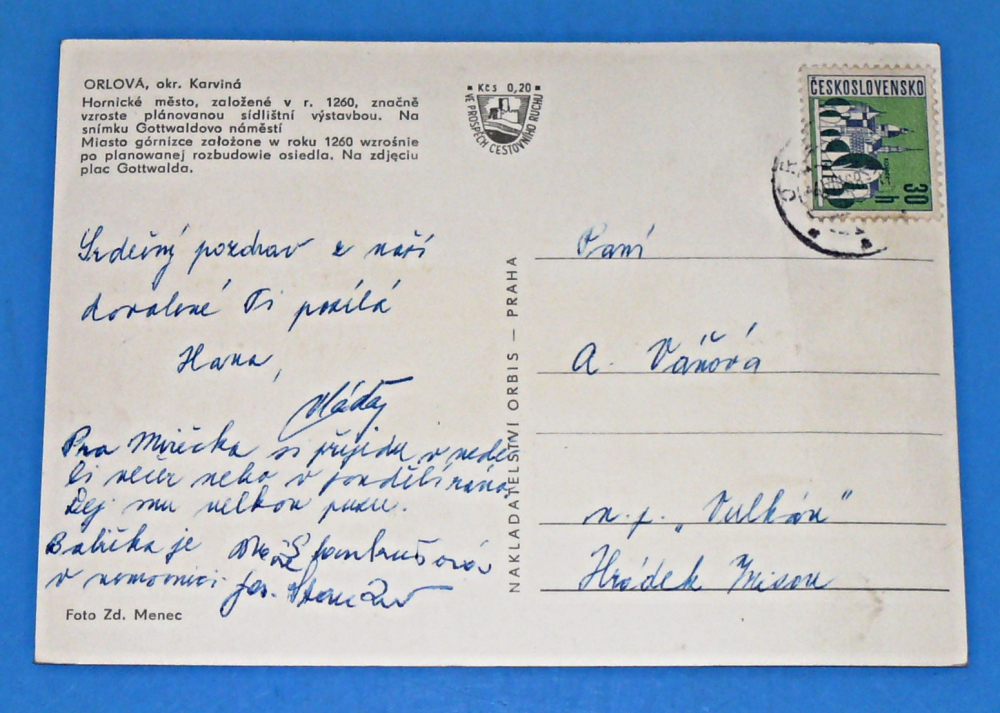 ORLOVÁ, okr. Karviná
Hornické město, založené v r. 1260, značně
vzroste plánovanou sídlištní výstavbou. Na
snímku Gottwaldovo náměstí
Miasto górnizce założone w roku 1260 wzrośnie
po planowanej rozbudowie osiedla. Na zdjęciu
plac Gottwalda.
Kčs 0,20
VE PROSPĚCH CESTOVNÍHO RUCHU
ČESKOSLOVENSKO
30 h
Srdečný pozdrav z naší
dovolené Ti posílá
Hana,
Pro Mirečka si přijedu v nedě
li večer nebo v pondělí ráno.
Dej mu velkou pusu.
Babička je
v nemocnici.
Foto Zd. Menec
NAKLADATELSTVÍ ORBIS — PRAHA
Paní
A. Váňová
n. p. „Vulkán"
Hrádek Nisou